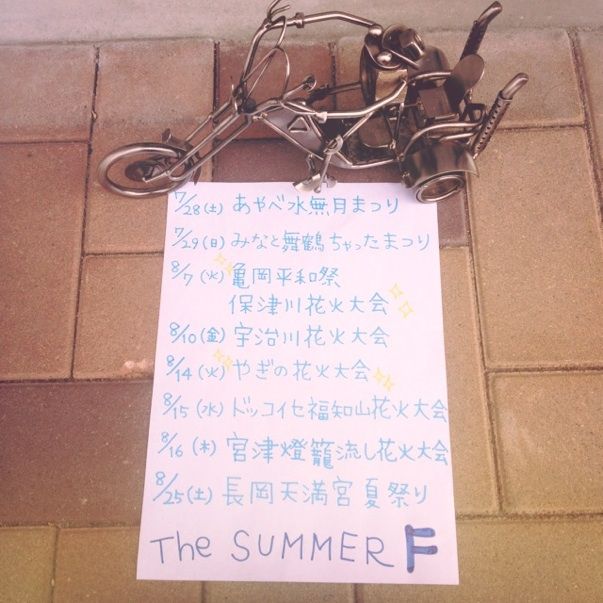 7/28(土) あやべ水無月まつり
7/29(日) みなと舞鶴ちゃったまつり
8/7(火) 亀岡平和祭
保津川花火大会
8/10(金) 宇治川花火大会
8/14(火) やぎの花火大会
8/15(水) ドッコイセ福知山花火大会
8/16(木) 宮津燈籠流し花火大会
8/25(土) 長岡天満宮 夏祭り
The SUMMER F